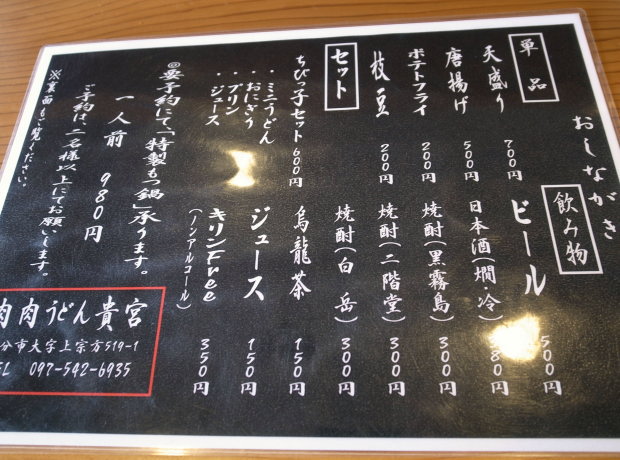 おしながき
単品
天盛り 700円
唐揚げ 500円
ポテトフライ 200円
枝豆 200円
セット
ちびっ子セット 600円
・ミニうどん
・おにぎり
・プリン
・ジュース
飲み物
ビール 500円
日本酒(燗・冷) 380円
焼酎(黒霧島) 300円
焼酎(二階堂) 300円
焼酎(白岳) 300円
烏龍茶 150円
ジュース 150円
キリンFree 350円
(ノンアルコール)
◎要予約にて、「特製もつ鍋」承ります。
一人前 980円
ご予約は、二名様以上にてお願いします。
※裏面もご覧ください。
肉肉うどん貴宮
分市大字上宗方519-1
EL 097-542-6935